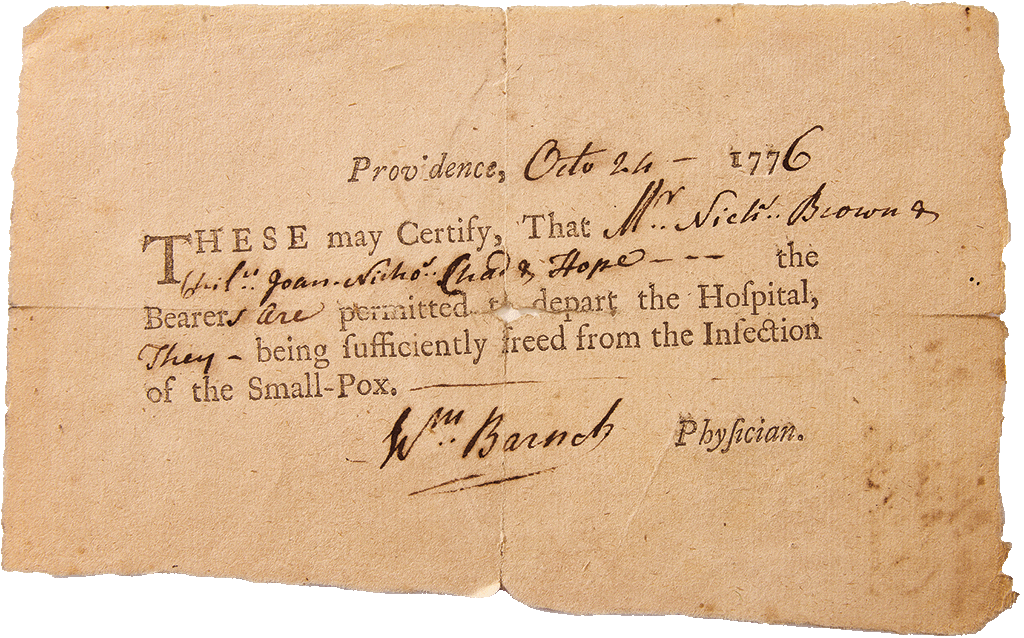 Providence, Octo 24 – 1776
THESE may Certify, That Mr. Nichs. Brown &
Joan. Nichos. Chad & Hope – – – the
Bearers are permitted to depart the Hoſpital,
They – being ſufficiently freed from the Infection
of the Small-Pox.
Wm. Physician.